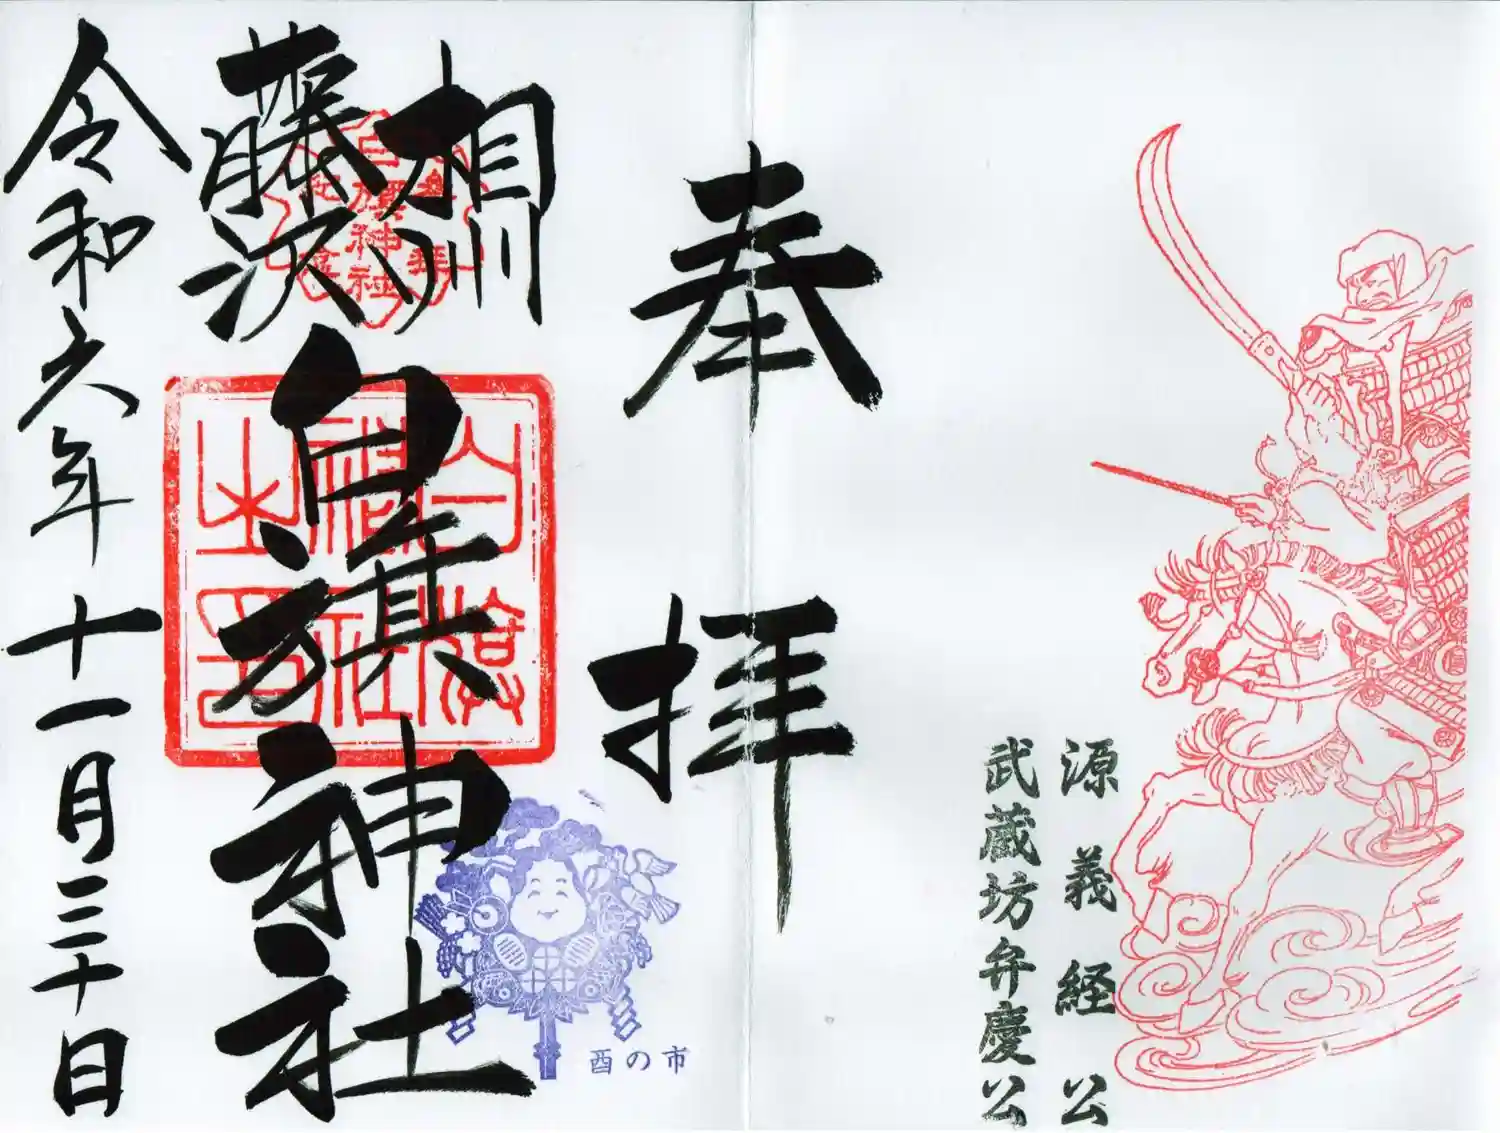 源義経公
武蔵坊弁慶公
奉拝
相州
藤沢
白旗神社
白旗神社
白旗
神社
之印
酉の市
令和六年十一月三十日